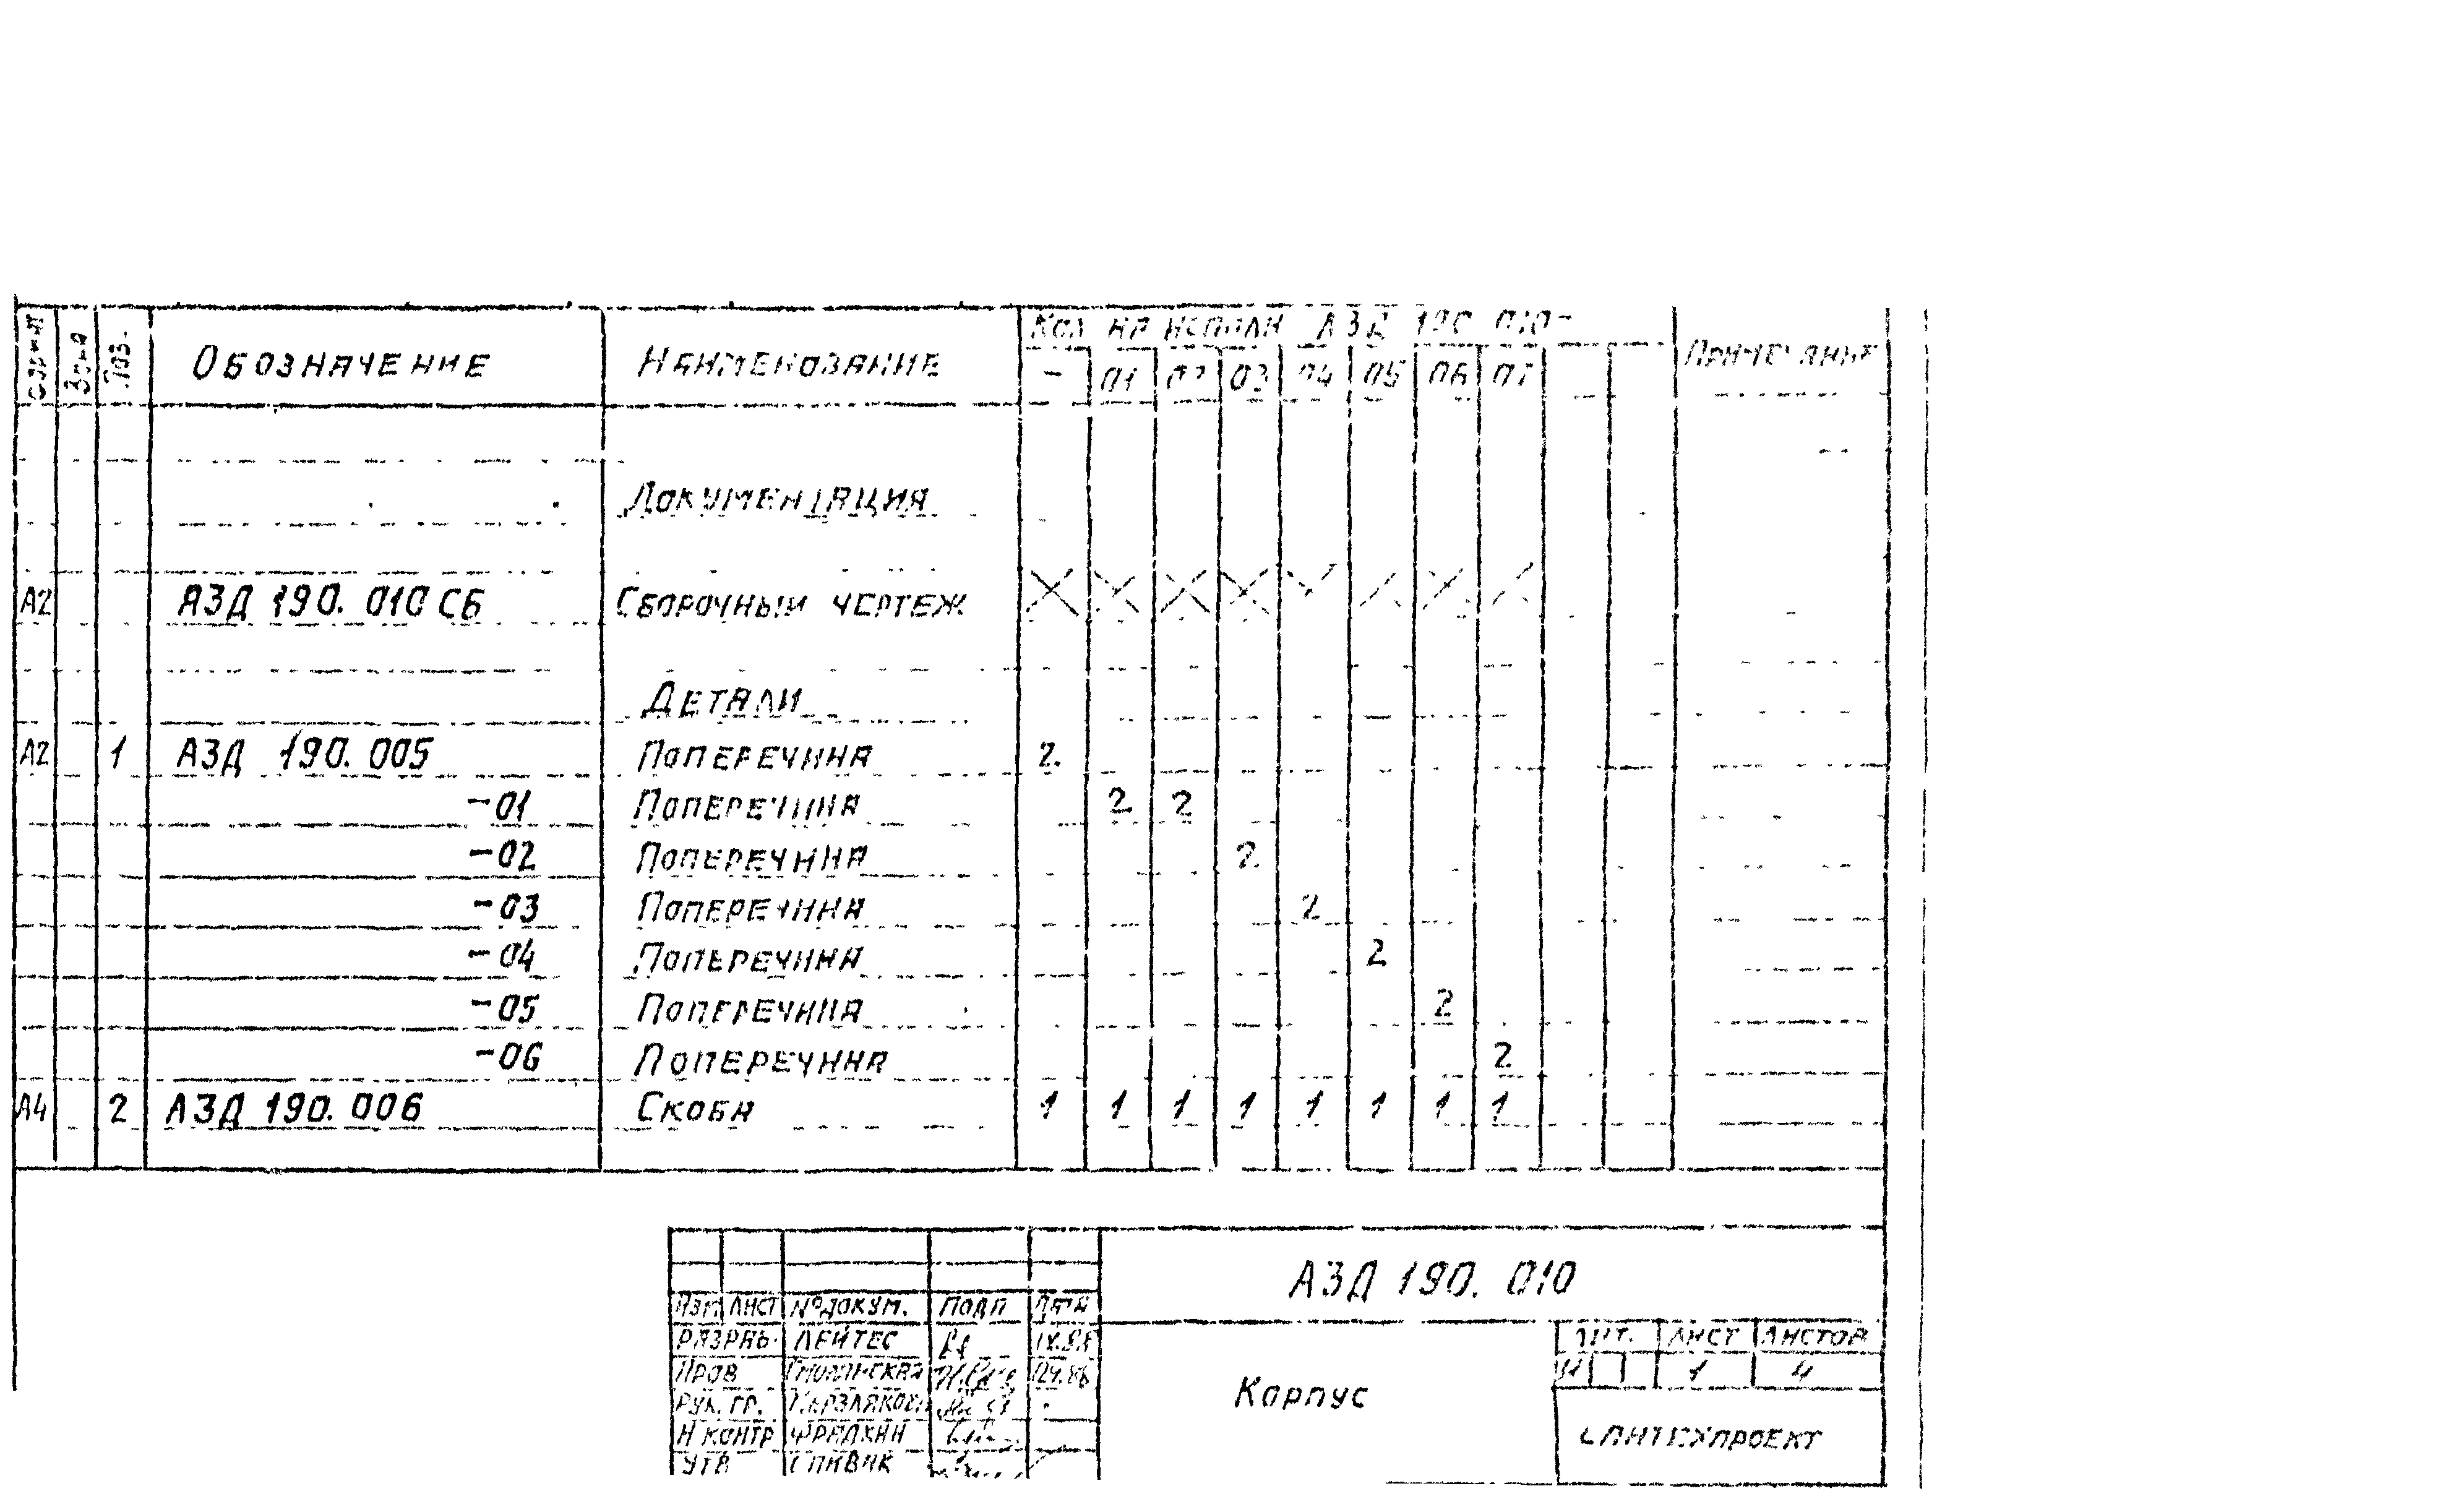 Формат Зона Поз. Обозначение Наименование Кол. на исполн. АЗД 190.010- Примечание
- 01 02 03 04 05 06 07
Документация
А2 АЗД 190.010 СБ Сборочный чертеж X X X X X X X X
Детали
А2 1 АЗД 190.005 Поперечина 2
-01 Поперечина 2 2
-02 Поперечина 2
-03 Поперечина 2
-04 Поперечина 2
-05 Поперечина 2
-06 Поперечина 2
А4 2 АЗД 190.006 Скоба 1 1 1 1 1 1 1 1
АЗД 190.010
Изм Лист № докум. Подп Дата
Разраб. Лейтес
Пров
Рук. гр.
Н контр Фрадкин
Утв Спивак
Корпус
Лит. Лист Листов
И 1 4
Сантехпроект